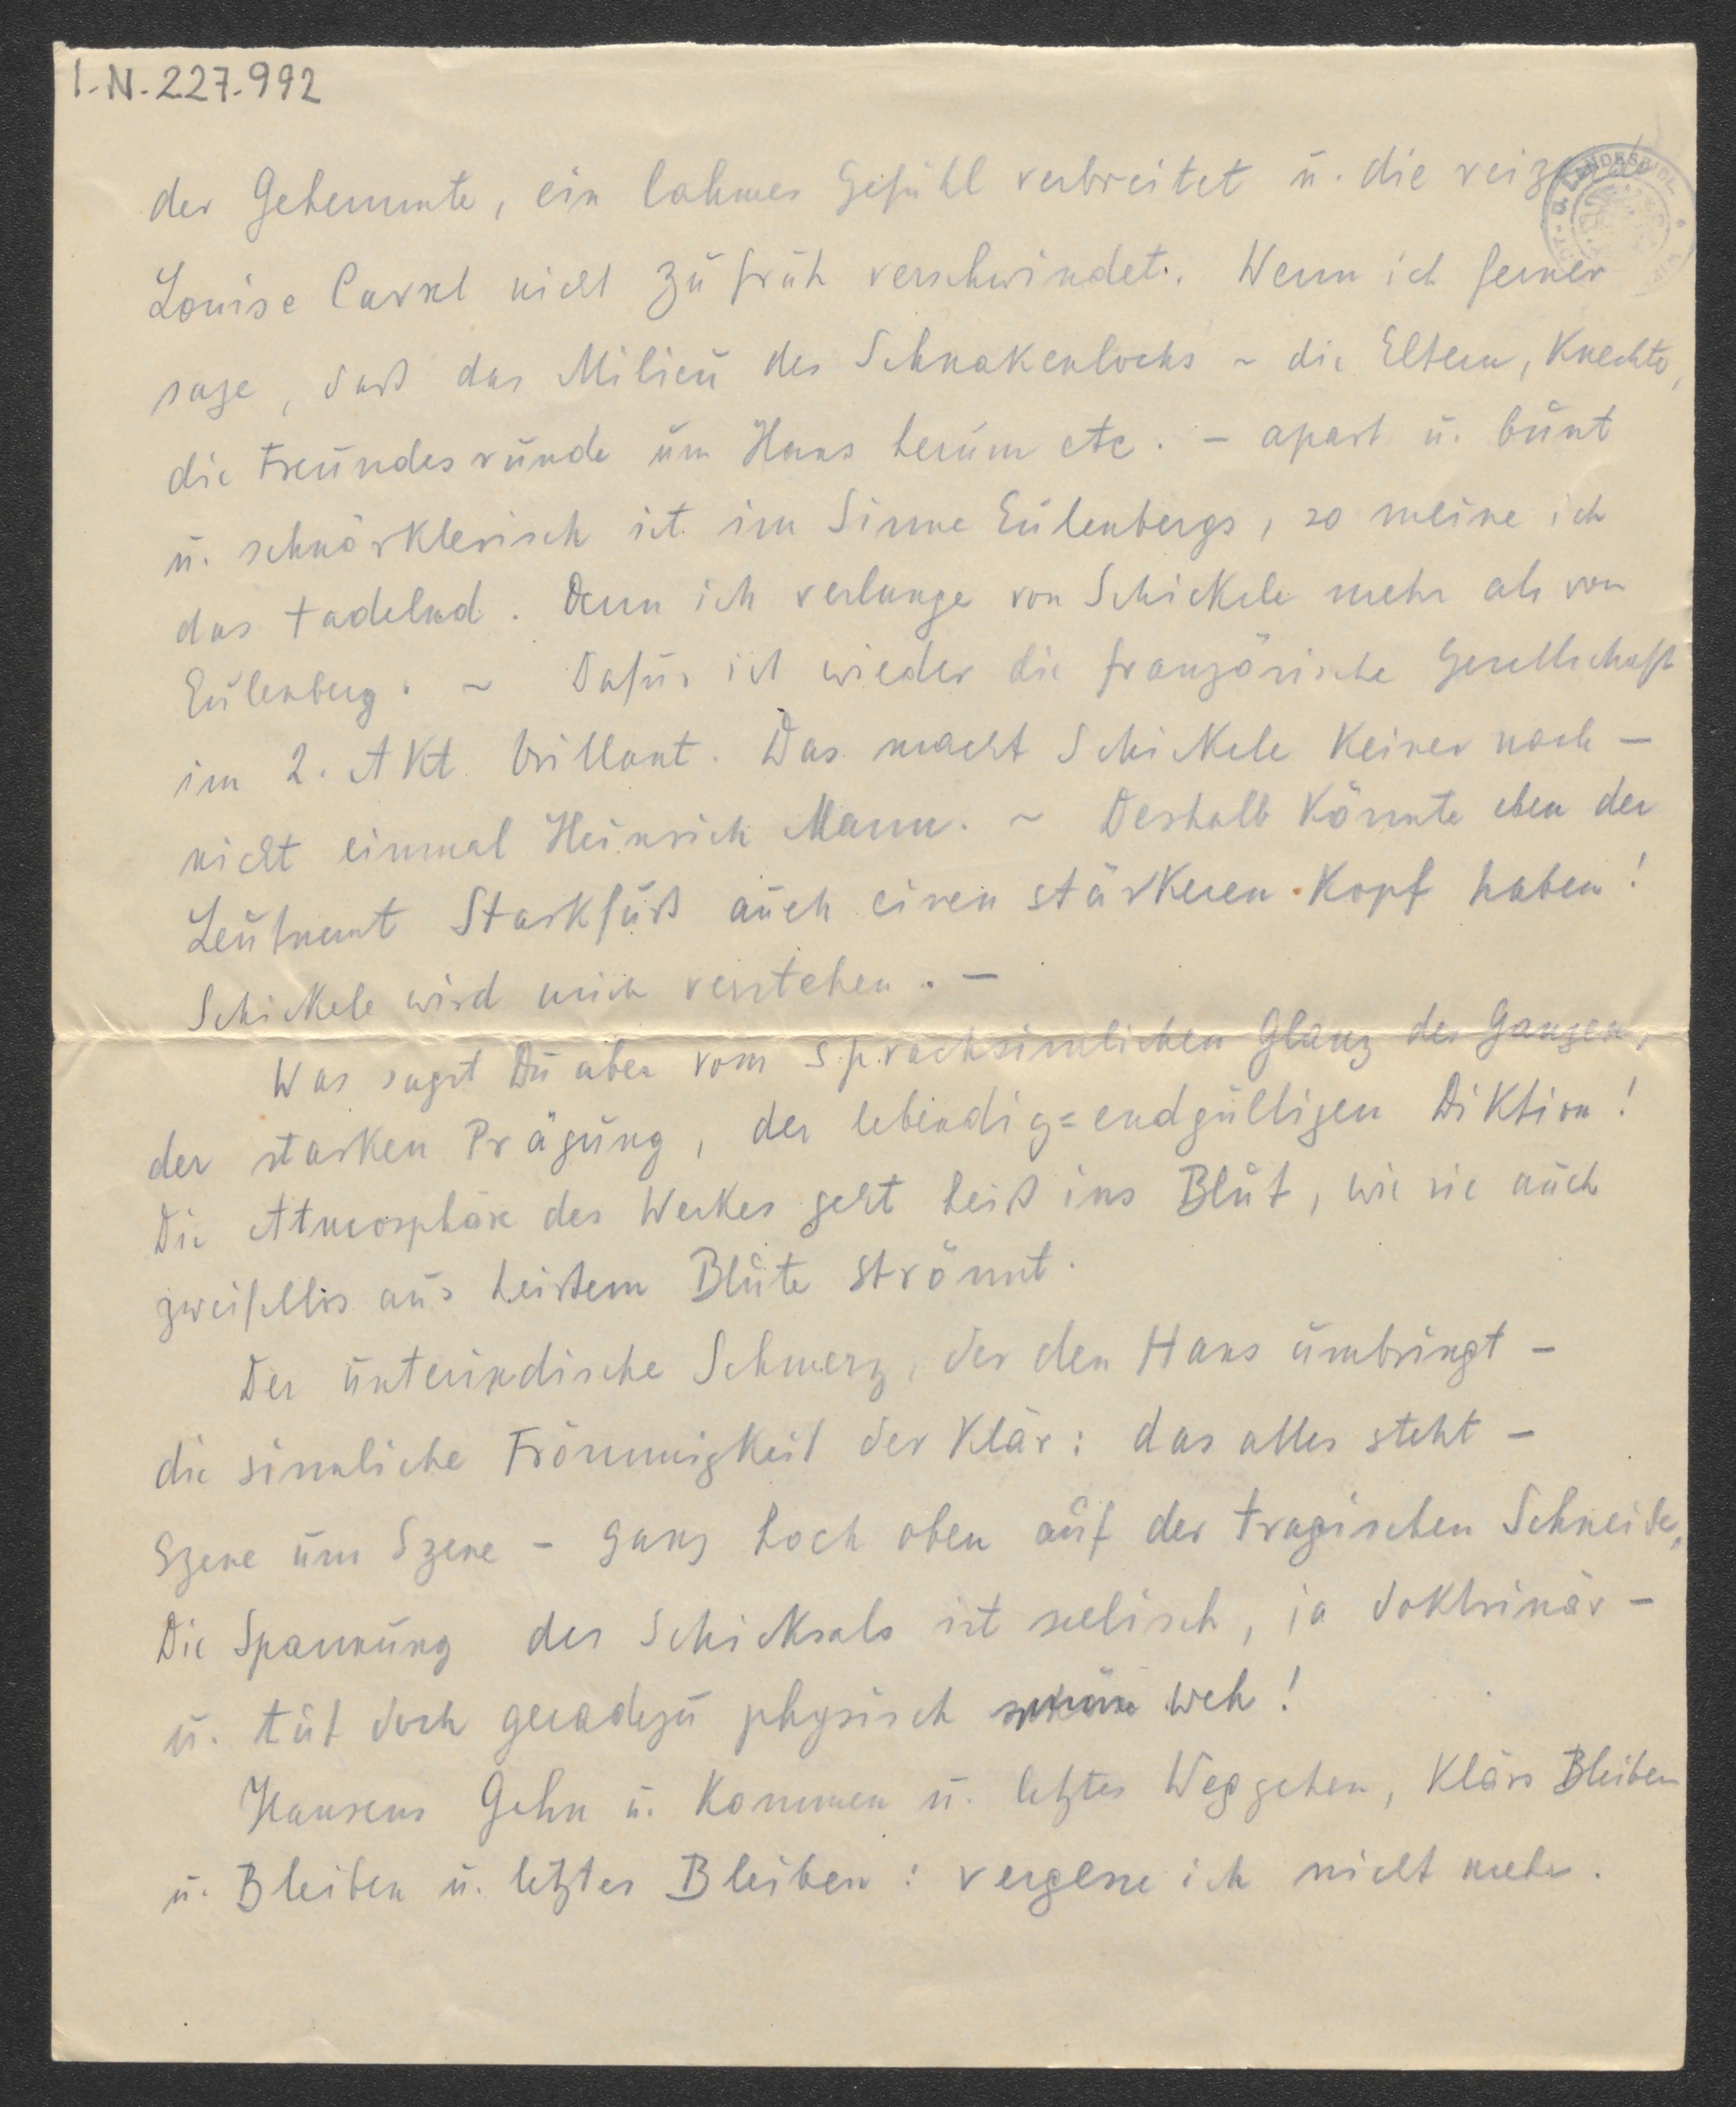 I-N-227.992
der Gehemmte, ein lahmes Gefühl verbreitet u. die
Louise Cavrel nicht zu früh verschwindet. Wenn ich ferner
sage, daß das Milieu des Schnakenlochs ~ die Eltern, Knechte,
die Freundesrunde um Hans herum etc. – apart u. bunt
u. schnörklerisch ist im Sinne Eulenbergs, so meine ich
das tadelnd. Denn ich verlange von Schickele mehr als von
Eulenberg. ~ Dafür ist wieder die französische Gesellschaft
im 2. Akt brillant. Das macht Schickele keiner nach –
nicht einmal Heinrich Mann. ~ Deshalb könnte eben der
Leutnant Starkfuß auch einen stärkeren Kopf haben!
Schickele wird mich verstehen. –
Was sagst Du aber vom sprachsinnlichen Glanz des Ganzen,
der starken Prägung, der lebendig=endgültigen Diktion!
Die Atmosphäre des Werkes geht heiß ins Blut, wie sie auch
zweifellos aus heißem Blute strömt.
Der unterirdische Schmerz, der den Hans umbringt –
die sinnliche Frömmigkeit der Klär: das alles steht –
Szene um Szene – ganz hoch oben auf der tragischen Schneide.
Die Spannung des Schicksals ist seelisch, ja doktrinär –
u. tut doch geradezu physisch weh!
Hansens Gehn u. Kommen u. letztes Weggehen, Klärs Bleiben
u. Bleiben u. letztes Bleiben: vergesse ich nicht mehr.